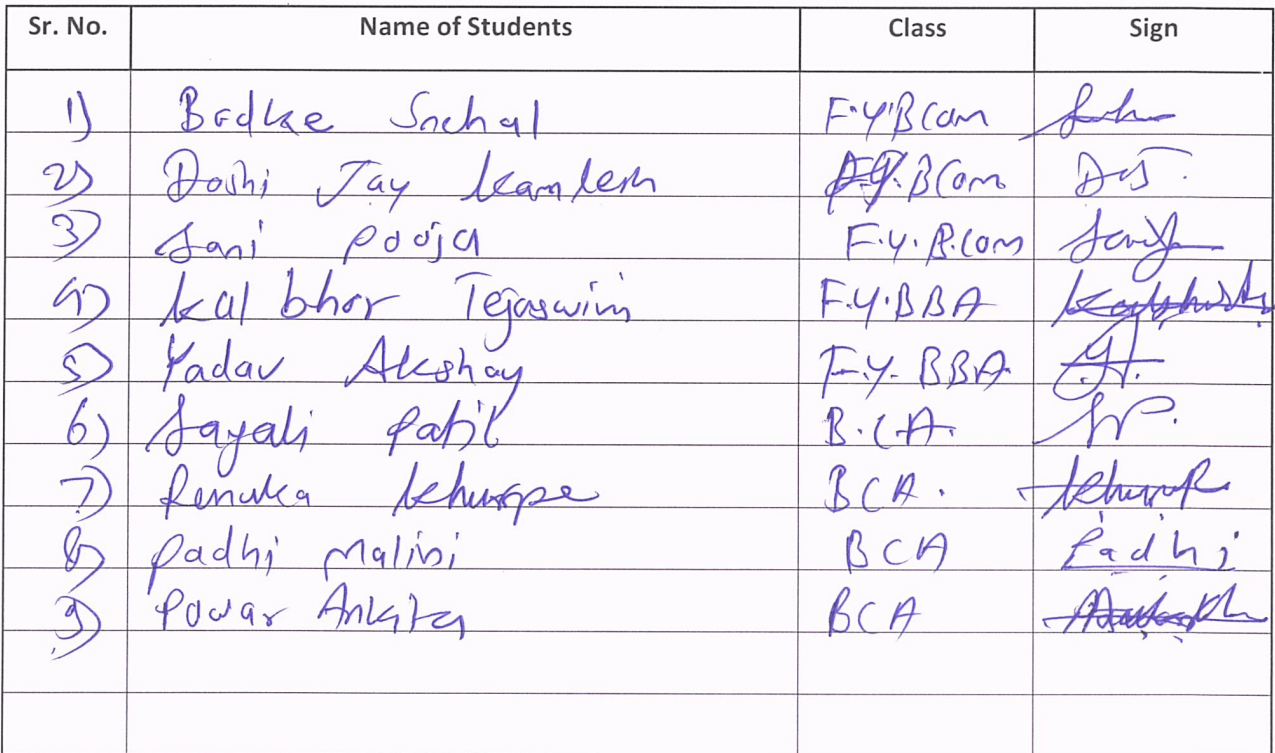 Sr. No. Name of Students Class Sign
1) Bodke Snehal F.Y.BCom
2) Doshi Jay Kamlesh F.Y.BCom
3) Jani Pooja F.Y.B.Com
4) Kalbhor Tejaswini F.Y.BBA
5) Yadav Akshay F.Y.BBA
6) Sayali Patil B.C.A.
7) Renuka Khurpe BCA.
8) Padhi Malini BCA Padhi
9) Powar Ankita BCA